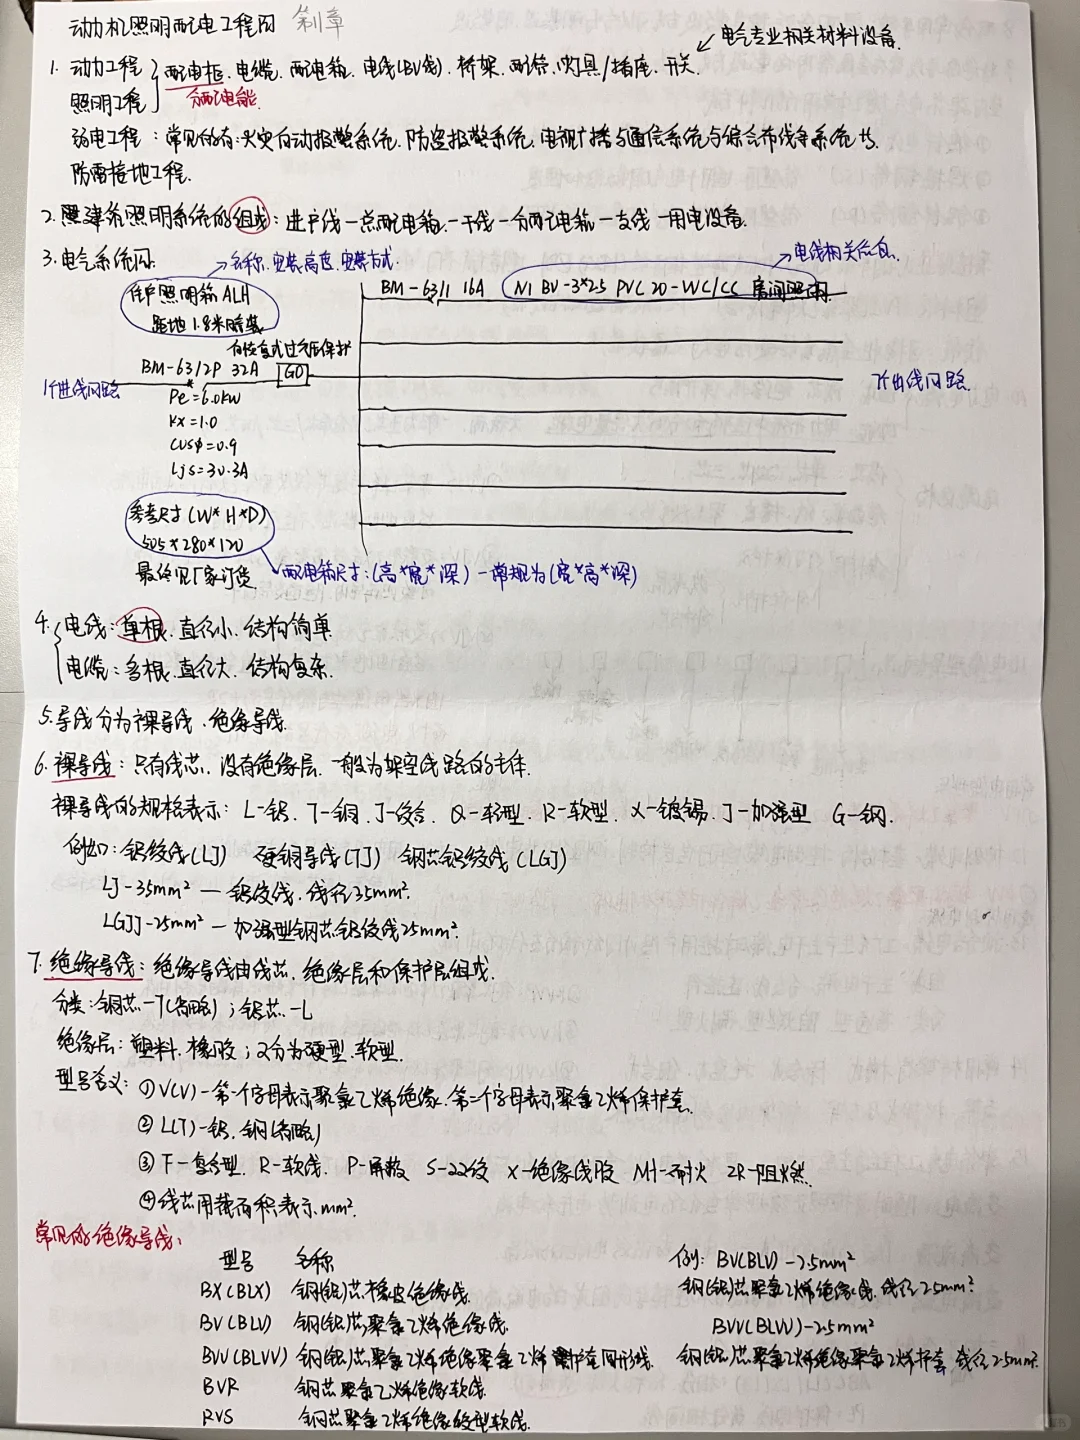 动力机照明配电工程图 第1章
电气专业相关材料设备.
1. 动力工程
照明工程
配电柜、电缆、配电箱、电线(BV线)、桥架、配管、灯具/插座、开关.
分配电能.
弱电工程：常见的有:火灾自动报警系统、防盗报警系统、电视广播与通信系统与综合布线等系统
防雷接地工程.
2. 建筑照明系统的组成：进户线—总配电箱—干线—分配电箱—支线—用电设备.
3. 电气系统图.
名称、安装高度、安装方式.
电线相关信息.
住户照明箱 ALH
距地1.8米暗装
BM-63/1 16A N1 BV-3*2.5 PVC20-WC/CC 房间照明
自恢复式过欠压保护
BM-63/2P 32A GQ
1个进线回路
7个出线回路
Pe=6.0kW
Kx=1.0
cosφ=0.9
Ijs=30.3A
参考尺寸(W*H*D)
505*280*120
最终见厂家订货
配电箱尺寸：(高*宽*深)—常规为(宽*高*深)
4. 电线：单根、直径小、结构简单.
电缆：多根、直径大、结构复杂.
5. 导线分为裸导线、绝缘导线.
6. 裸导线：只有线芯、没有绝缘层、一般为架空线路的主体.
裸导线的规格表示：L-铝、T-铜、J-绞合、Q-轻型、R-软型、X-镀锡、J-加强型 G-钢.
例如：铝绞线(LJ) 硬铜导线(TJ) 钢芯铝绞线(LGJ)
LJ-35mm² — 铝绞线、线径35mm².
LGJJ-25mm² — 加强型钢芯铝绞线25mm².
7. 绝缘导线：绝缘导线由线芯、绝缘层和保护层组成.
分类：铜芯-T(省略)；铝芯-L
绝缘层：塑料、橡胶；又分为硬型、软型.
型号含义：①V(V)-第一个字母表示聚氯乙烯绝缘、第二个字母表示聚氯乙烯保护套.
②L(T)-铝、铜(省略)
③F-复合型、R-软线、P-屏蔽 S-双绞 X-绝缘线胶 NH-耐火 ZR-阻燃.
④线芯用截面积表示mm².
常见的绝缘导线：
型号 名称 例：BV(BLV)-2.5mm²
BX(BLX) 铜(铝)芯橡皮绝缘线. 铜(铝)芯聚氯乙烯绝缘线、线径2.5mm².
BV(BLV) 铜(铝)芯聚氯乙烯绝缘线. BVV(BLVV)-2.5mm²
BVV(BLVV) 铜(铝)芯聚氯乙烯绝缘聚氯乙烯护套圆形线. 铜(铝)芯聚氯乙烯绝缘聚氯乙烯护套 线径2.5mm².
BVR 铜芯聚氯乙烯绝缘软线.
RVS 铜芯聚氯乙烯绝缘绞型软线.